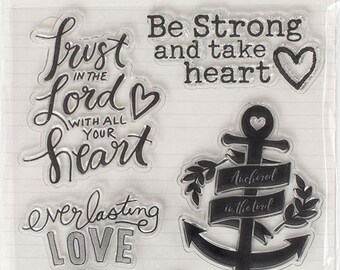 Trust
IN THE
Lord
WITH ALL
YOUR
Heart
Be Strong
and take
heart
everlasting
LOVE
Anchored
in the Lord